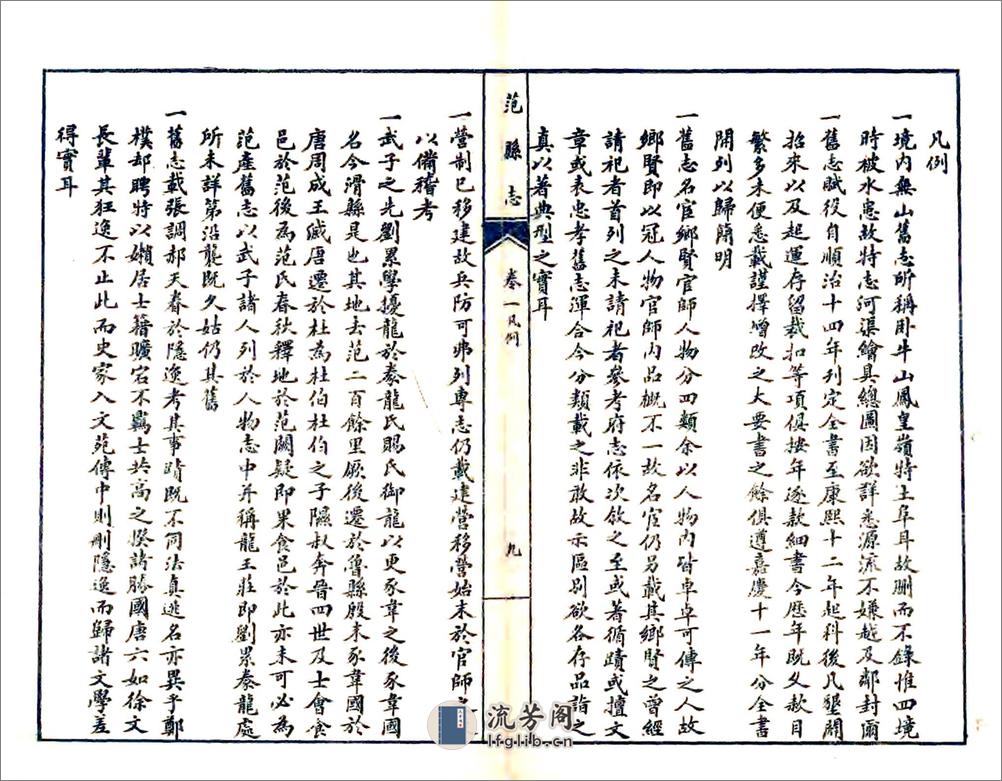 凡例
一境內無山舊志所稱卧牛山鳳皇嶺特土阜耳故刪而不錄惟四境
時被水患故特志河渠繪具總圖因欲詳悉源流不嫌越及鄰封爾
一舊志賦役自順治十四年列定全書至康熙十二年起科後凡墾闢
招來以及起運存留裁扣等項俱按年逐款細書今歷年既久款目
繁多未便悉載謹擇增改之大要書之餘俱遵嘉慶十一年分全書
開列以歸簡明
一舊志名宦鄉賢官師人物分四類余以人物內皆卓卓可傳之人故
鄉賢即以冠人物官師內品概不一故名宦仍另載其鄉賢之曾經
請祀者首列之未請祀者參考府志依次敘之至或著循蹟或擅文
章或表忠孝舊志渾合今分類載之非敢故示區別欲各存品詣之
真以著典型之實耳
范縣志
卷一凡例
九
一營制已移建故兵防可弗列專志仍載建營移營始末於官師之
以備稽考
一武子之先劉累學擾龍於豢龍氏賜氏御龍以更豕韋之後豕韋國
名今滑縣是也其地去范二百餘里厥後遷於魯縣殷末豕韋國於
唐周成王滅唐遷於杜為杜伯杜伯之子隰叔奔晉四世及士會食
邑於范後為范氏春秋釋地於范闕疑即果食邑於此亦未可必為
范產舊志以武子諸人列於人物志中并稱龍王莊即劉累豢龍處
所未詳第沿襲既久姑仍其舊
一舊志載張調郝天春於隱逸考其事蹟既不同法真逃名亦異乎鄭
樸却聘特以嬾居士籍曠宕不羈士共高之揆諸勝國唐六如徐文
長輩其狂逸不止此而史家入文苑傳中則刪隱逸而歸諸文學差
得實耳
流芳阁
lfglib.cn